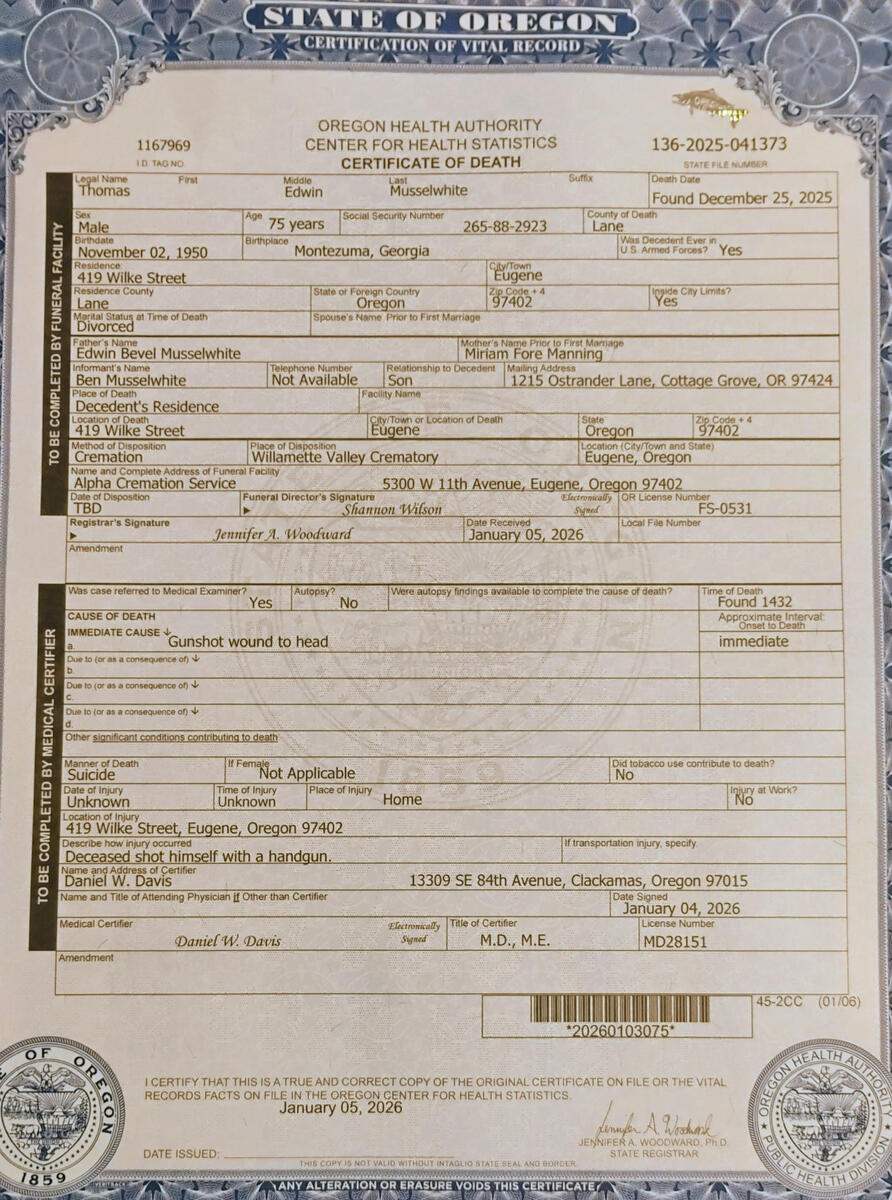 STATE OF OREGON
CERTIFICATION OF VITAL RECORD
OREGON HEALTH AUTHORITY
1167969 CENTER FOR HEALTH STATISTICS 136-2025-041373
I.D. TAG NO. CERTIFICATE OF DEATH STATE FILE NUMBER
TO BE COMPLETED BY FUNERAL FACILITY
Legal Name First Middle Last Suffix Death Date
Thomas Edwin Musselwhite Found December 25, 2025
Sex Age Social Security Number County of Death
Male 75 years 265-88-2923 Lane
Birthdate Birthplace Was Decedent Ever in U.S. Armed Forces?
November 02, 1950 Montezuma, Georgia Yes
Residence: City/Town
419 Wilke Street Eugene
Residence County State or Foreign Country Zip Code + 4 Inside City Limits?
Lane Oregon 97402 Yes
Marital Status at Time of Death Spouse's Name Prior to First Marriage
Divorced
Father's Name Mother's Name Prior to First Marriage
Edwin Bevel Musselwhite Miriam Fore Manning
Informant's Name Telephone Number Relationship to Decedent Mailing Address
Ben Musselwhite Not Available Son 1215 Ostrander Lane, Cottage Grove, OR 97424
Place of Death Facility Name
Decedent's Residence
Location of Death City/Town or Location of Death State Zip Code + 4
419 Wilke Street Eugene Oregon 97402
Method of Disposition Place of Disposition Location (City/Town and State)
Cremation Willamette Valley Crematory Eugene, Oregon
Name and Complete Address of Funeral Facility
Alpha Cremation Service 5300 W 11th Avenue, Eugene, Oregon 97402
Date of Disposition Funeral Director's Signature Electronically Signed OR License Number
TBD Shannon Wilson FS-0531
Registrar's Signature Date Received Local File Number
Jennifer A. Woodward January 05, 2026
Amendment
TO BE COMPLETED BY MEDICAL CERTIFIER
Was case referred to Medical Examiner? Autopsy? Were autopsy findings available to complete the cause of death? Time of Death
Yes No Found 1432
CAUSE OF DEATH Approximate Interval: Onset to Death
IMMEDIATE CAUSE ↓
a. Gunshot wound to head immediate
Due to (or as a consequence of) ↓
b.
Due to (or as a consequence of) ↓
c.
Due to (or as a consequence of) ↓
d.
Other significant conditions contributing to death
Manner of Death If Female Did tobacco use contribute to death?
Suicide Not Applicable No
Date of Injury Time of Injury Place of Injury Injury at Work?
Unknown Unknown Home No
Location of Injury
419 Wilke Street, Eugene, Oregon 97402
Describe how injury occurred If transportation injury, specify.
Deceased shot himself with a handgun.
Name and Address of Certifier
Daniel W. Davis 13309 SE 84th Avenue, Clackamas, Oregon 97015
Name and Title of Attending Physician If Other than Certifier Date Signed
January 04, 2026
Medical Certifier Electronically Signed Title of Certifier License Number
Daniel W. Davis M.D., M.E. MD28151
Amendment
45-2CC (01/06)
*20260103075*
I CERTIFY THAT THIS IS A TRUE AND CORRECT COPY OF THE ORIGINAL CERTIFICATE ON FILE OR THE VITAL
RECORDS FACTS ON FILE IN THE OREGON CENTER FOR HEALTH STATISTICS.
January 05, 2026
Jennifer A. Woodward
JENNIFER A. WOODWARD, Ph.D.
STATE REGISTRAR
DATE ISSUED:
THIS COPY IS NOT VALID WITHOUT INTAGLIO STATE SEAL AND BORDER.
ANY ALTERATION OR ERASURE VOIDS THIS CERTIFICATE
OF OREGON
1859
OREGON HEALTH
PUBLIC HEALTH DIVISION